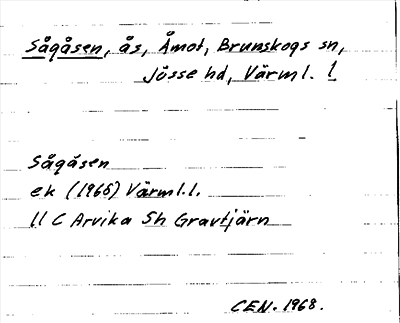 Sågåsen, ås, Åmot, Brunskogs sn,
Jösse hd, Värml. l
Sågåsen
ek (1968) Värml.l.
11 C Arvika Sh Gravtjärn
CEN. 1968.